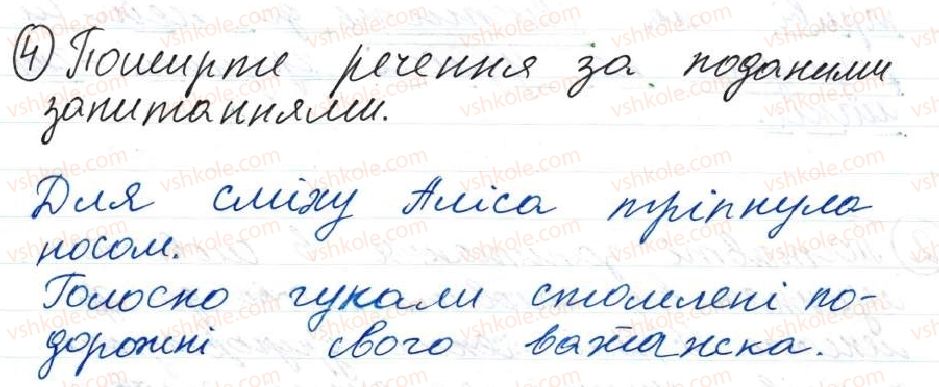 ④ Поширте речення за поданими
запитаннями.
Для сміху Аліса тріпнула
носом.
Голосно гукали стомлені по-
дорожні свого ватажка.